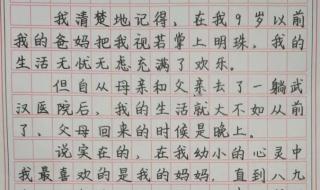 我清楚地记得，在我9岁以前
我的爸妈把我视若掌上明珠，我的
生活无忧无虑充满了欢乐。
但自从母亲和父亲去了一躺武
汉医院后，我的生活就大不如从前
了、父母回来的时候是晚上。
说实在的，在我幼小的心灵中
我最喜欢的是我的妈妈，直到八九